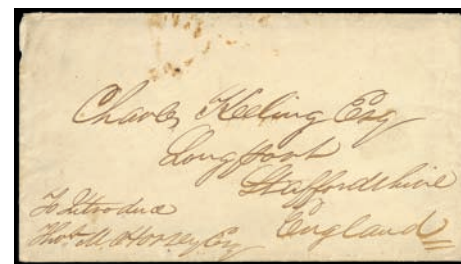 Charles Keeling Esq
Longport
Staffordshire
England
To Introduce
Thos. M. Horsey Esq